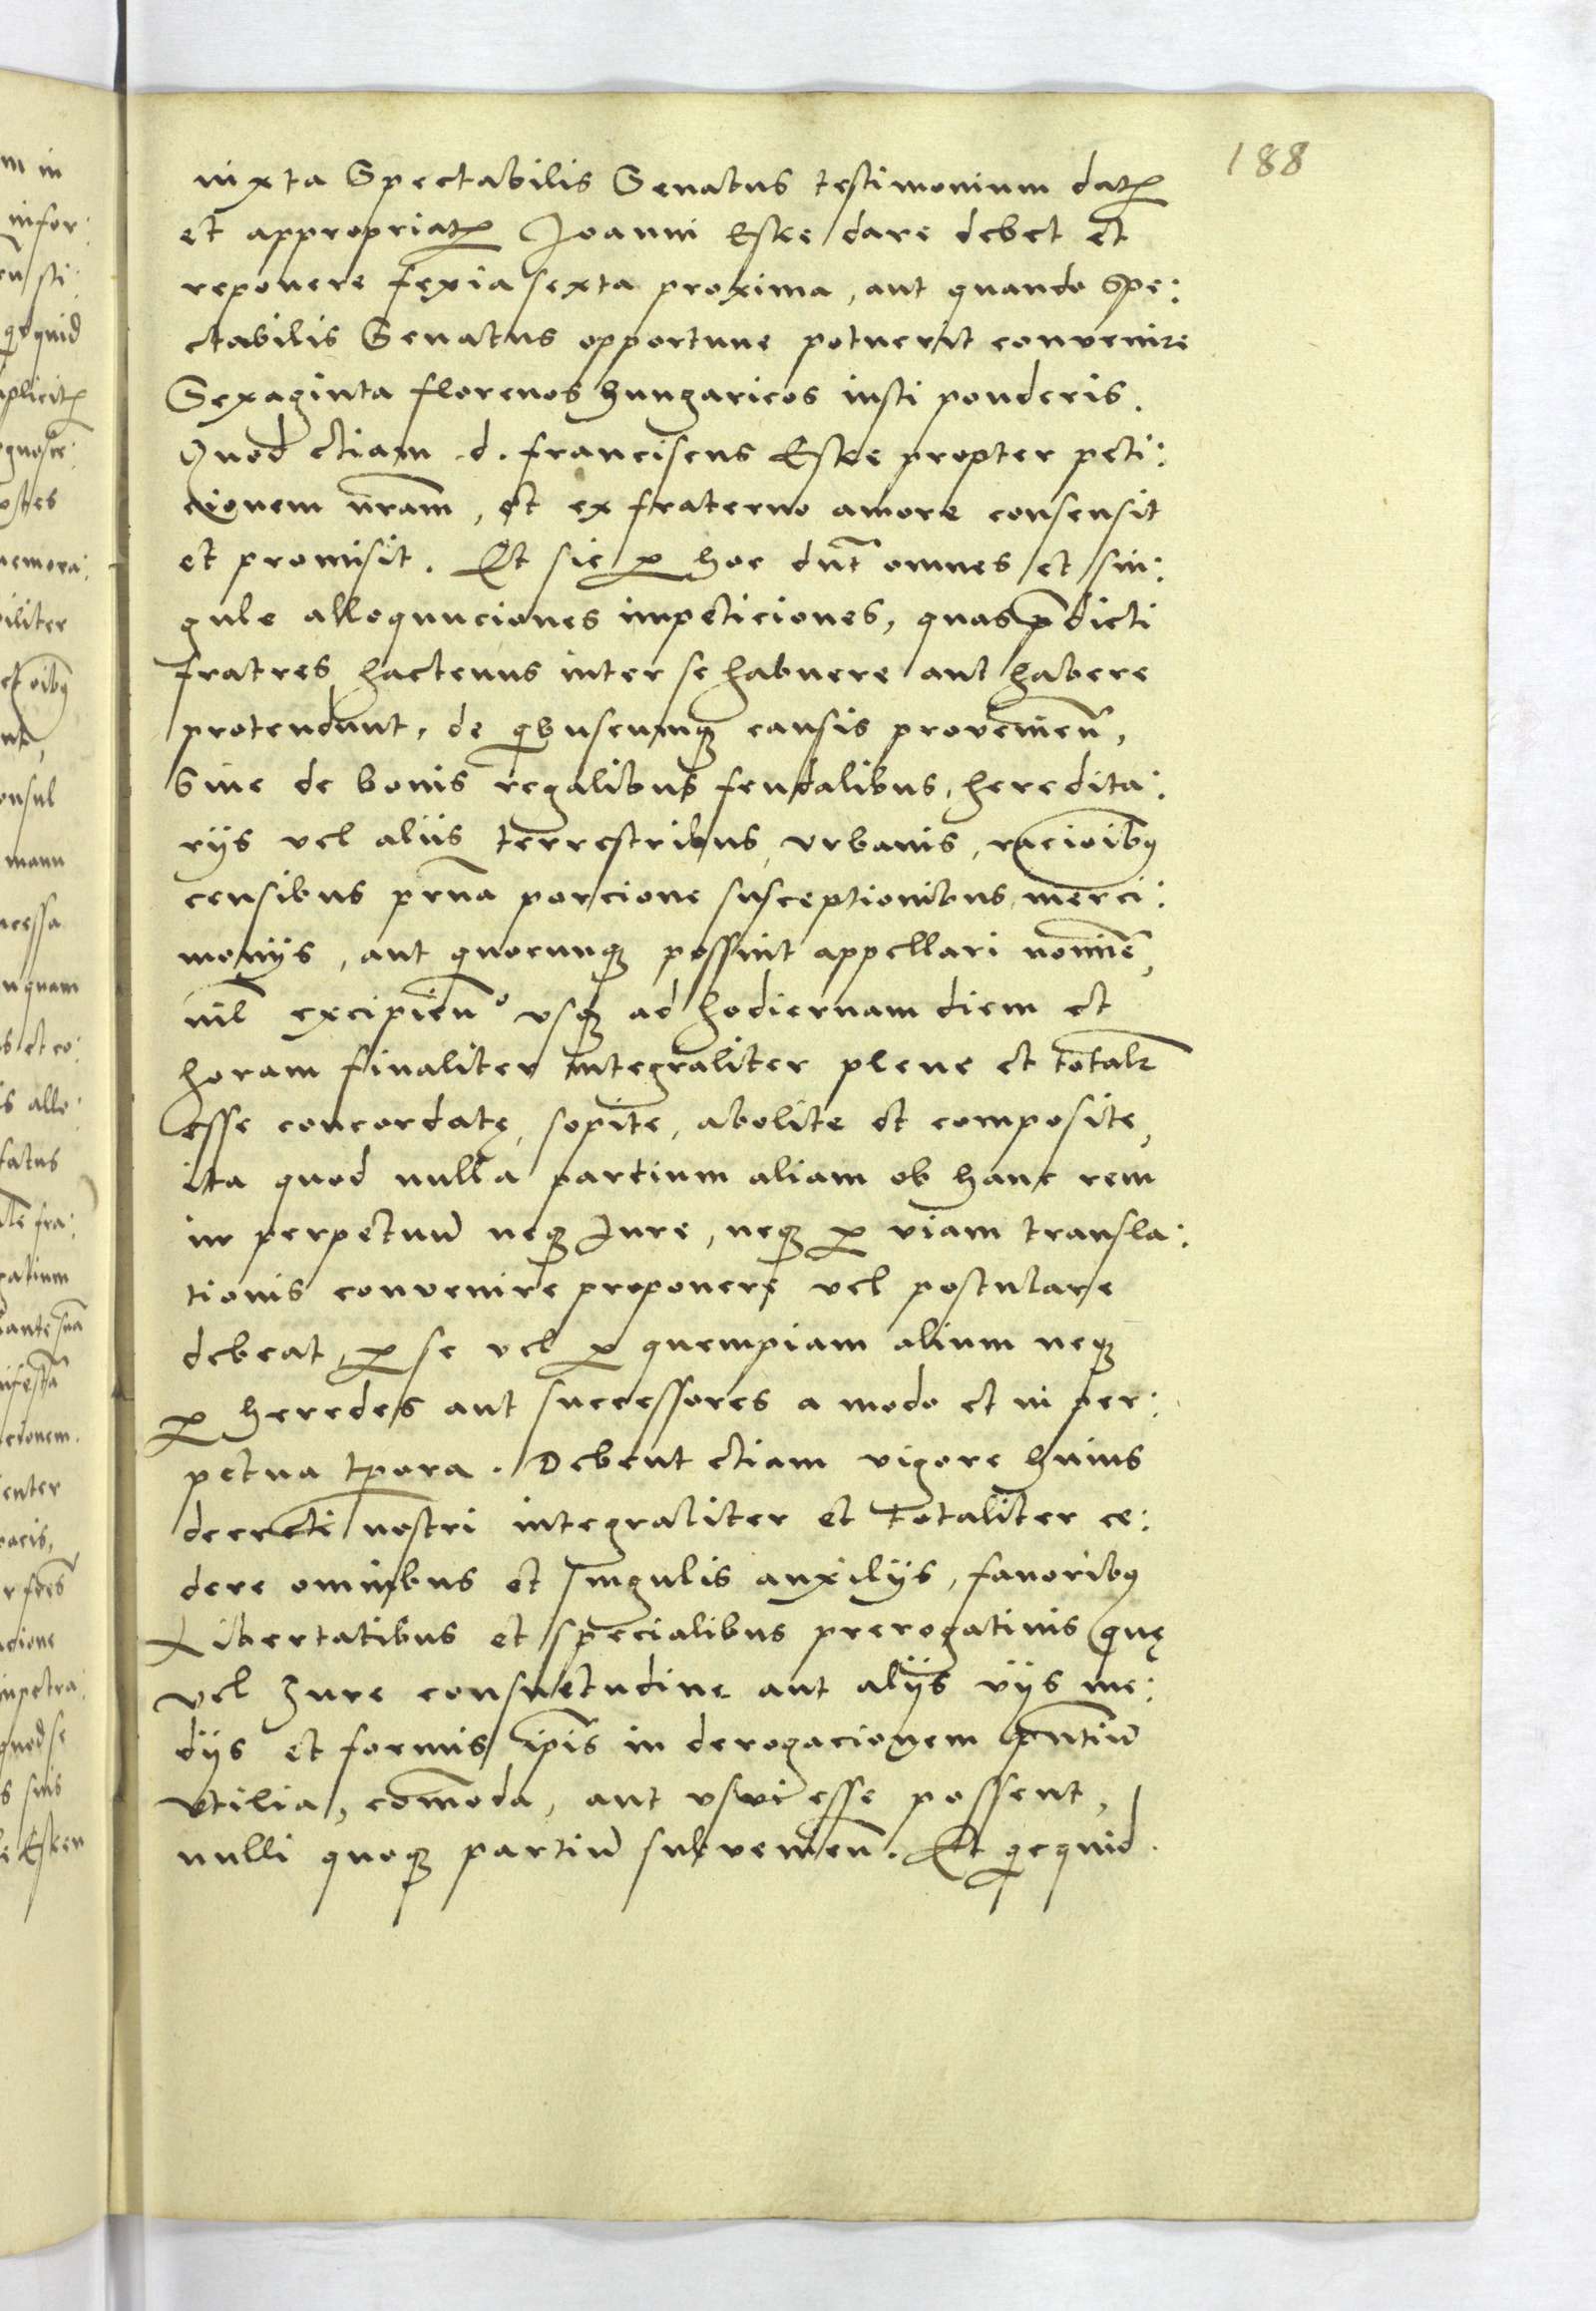 188
iuxta Spectabilis Senatus testimonium datꝫ
et appropriatꝫ Joanni Eske dare debet et
reponere feria sexta proxima, aut quando Spe:
ctabilis Senatus opportune potuerit convenire
Sexaginta florenos hungaricos iusti ponderis.
Quod etiam d. franciscus Eske propter peti:
cionem nr̄am, et ex fraterno amore consensit
et promisit. Et sic ꝑ hoc dn̄t omnes et sin:
gule alloquuciones impeticiones, quas p̄dicti
fratres hactenus inter se habuere aut habere
protendunt, de qibuscumqꝫ causis provenien̄,
Siue de bonis regalibus feudalibus, heredita:
rijs vel aliis terrestribus, vrbanis, racioībꝰ
censibus pr̄na porcione susceptionibus, merci:
monijs, aut quocunqꝫ possint appellari nomīe,
nil̄ excipien̄º vsqꝫ ad hodiernam diem et
horam finaliter integraliter plene et totalr̄
esse concordatę, sopite, abolite et composite,
ita quod nulla partium aliam ob hanc rem
in perpetuū neqꝫ Jure, neqꝫ ꝑ viam transla:
tionis convenire proponere vel postulare
debeat, ꝑ se vel ꝑ quempiam alium neqꝫ
ꝑ heredes aut successores a modo et in per:
petua tp̄ora. Debent etiam vigore huius
decreti nostri integraliter et totaliter ce:
dere omnibus et singulis auxilijs, fauoribꝰ
Libertatibus et specialibus prerogatiuis quę
vel Jure consuetudine aut alijs vijs me:
dijs et formis ip̄is in derogacionem pn̄tiū
vtilia, com̄oda, aut vsui esse possent,
nulli quoqꝫ partiū subvenien̄. Et qicquid